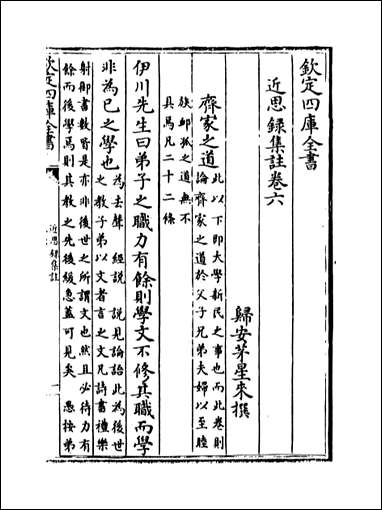 欽定四庫全書
近思錄集註卷六
歸安茅星來撰
齊家之道
此以下即大學新民之事也而此卷則
論齊家之道於父子兄弟夫婦以至睦
族卹孤之道無不
具焉凡二十二條
伊川先生曰弟子之職力有餘則學文不修其職而學
非為己之學也
為去聲 經説 説見論語此為後世
之教子弟以文者言之文凡詩書禮樂
射御書數皆是亦非後世之所謂文也然且必待力有
餘而後學焉則其教之先後緩急蓋可見矣 愚按弟
欽定四庫全書
近思錄集註
一